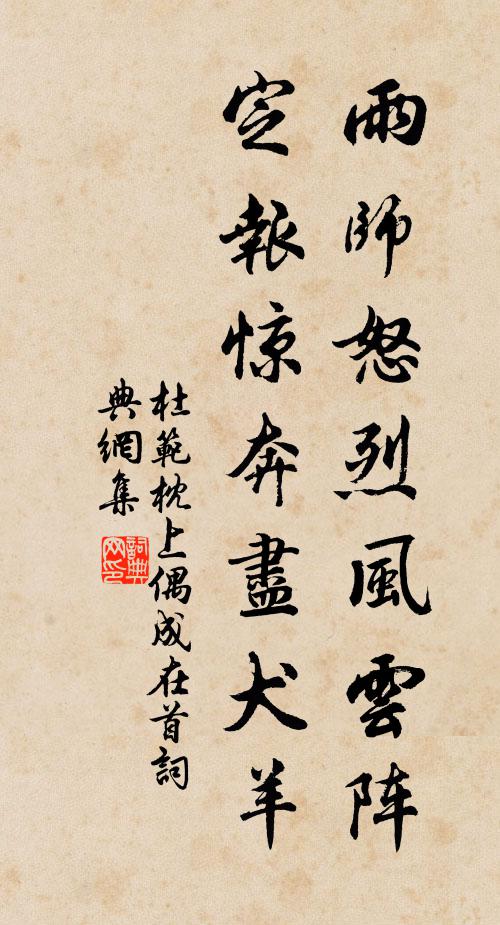 雨師怒烈風雲阵
定報惊奔盡犬羊
杜範枕上偶成在首詞
典網集
詞典
网印